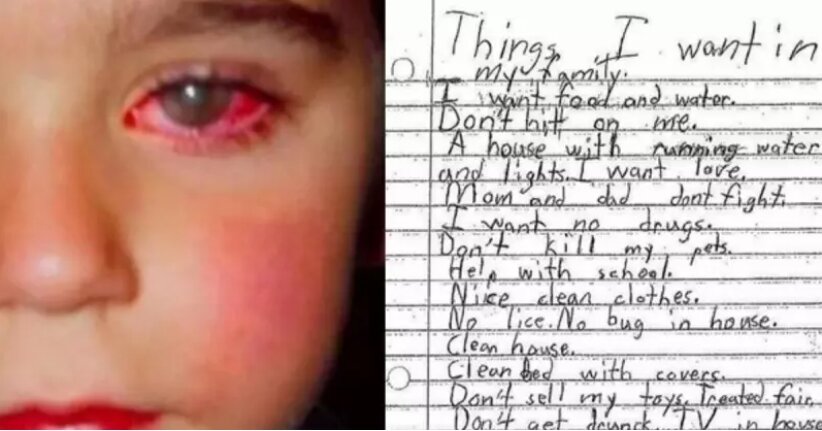 Things I want in
my family.
I want food and water.
Don't hit on me.
A house with running water
and lights. I want love.
Mom and dad dont fight.
I want no drugs.
Don't kill my pets.
Help with school.
Nice clean clothes.
No lice. No bug in house.
Clean house.
Clean bed with covers.
Don't sell my toys. Treated fair.
Don't get drunck. TV in house